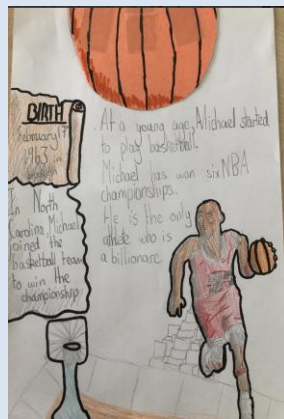 BIRTH
February 17
1963 in
In North
Carolina, Michael
joined the
basketball team
to win the
championship
At a young age, Michael started
to play basketball.
Michael has won six NBA
championships.
He is the only
athlete who is
a billionare